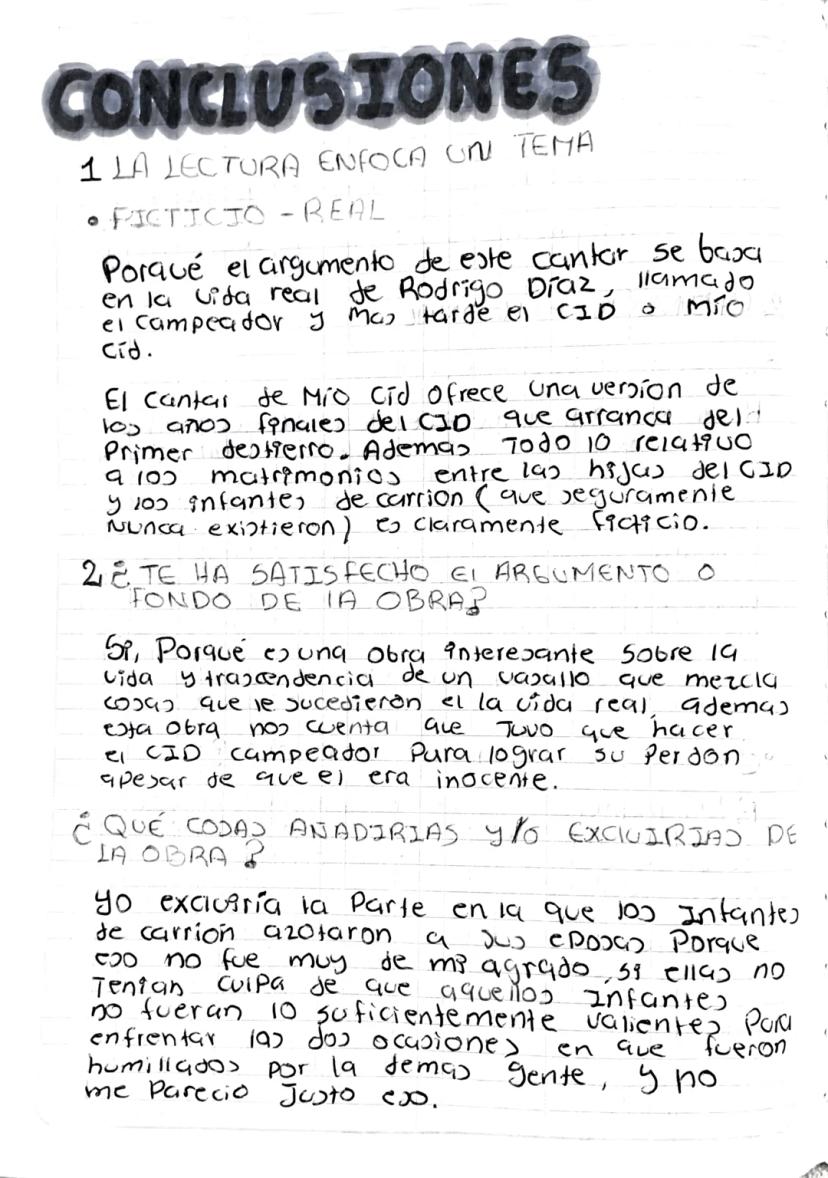 CONCLUSIONES
1 LA LECTURA ENFOCA UN TEMA
• FICTICIO - REAL
Porqué el argumento de este cantar se basa
en la vida real de Rodrigo Díaz, llamado
el Campeador y mas tarde el CID o Mío
Cíd.
El Cantar de Mío Cíd ofrece una version de
los años finales del CID que arranca del
Primer destierro. Ademas Todo lo relativo
a los matrimonios entre las hijas del CID
y los infantes de carrion (que seguramente
Nunca existieron) es claramente ficticio.
2 ¿ TE HA SATISFECHO El ARGUMENTO O
FONDO DE lA OBRA?
Si, Porqué es una obra interesante sobre la
vida y trascendencia de un vasallo que mezcla
cosas que le sucedieron el la vida real, ademas
esta obra nos cuenta que Tuvo que hacer
el CID campeador Para lograr su Perdon
apesar de que el era inocente.
¿ QUÉ COSAS AÑADIRIAS y/o EXClUIRIAS DE
LA OBRA ?
yo excluiría la Parte en la que los Infantes
de carrion azotaron a sus eposas Porque
eso no fue muy de mi agrado, si ellas no
Tenian culpa de que aquellos Infantes
no fueran lo suficientemente valientes Para
enfrentar las dos ocasiones en que fueron
humillados por la demas gente, y no
me Parecio Justo eso.